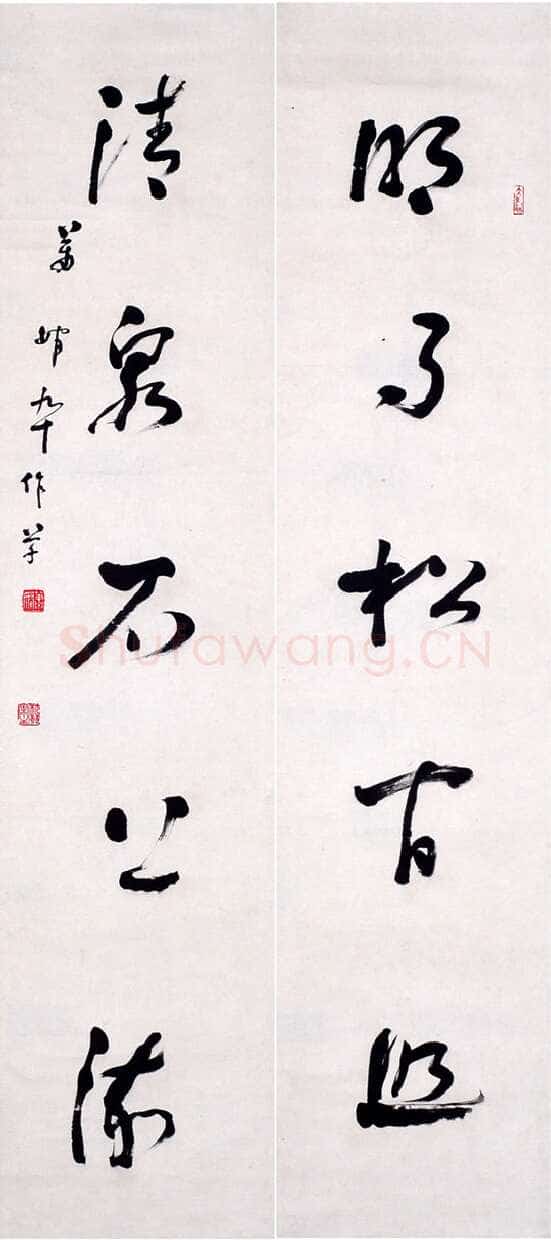 明月松間照
清泉石上流
蕭嫻九十作草
Shufawang.CN